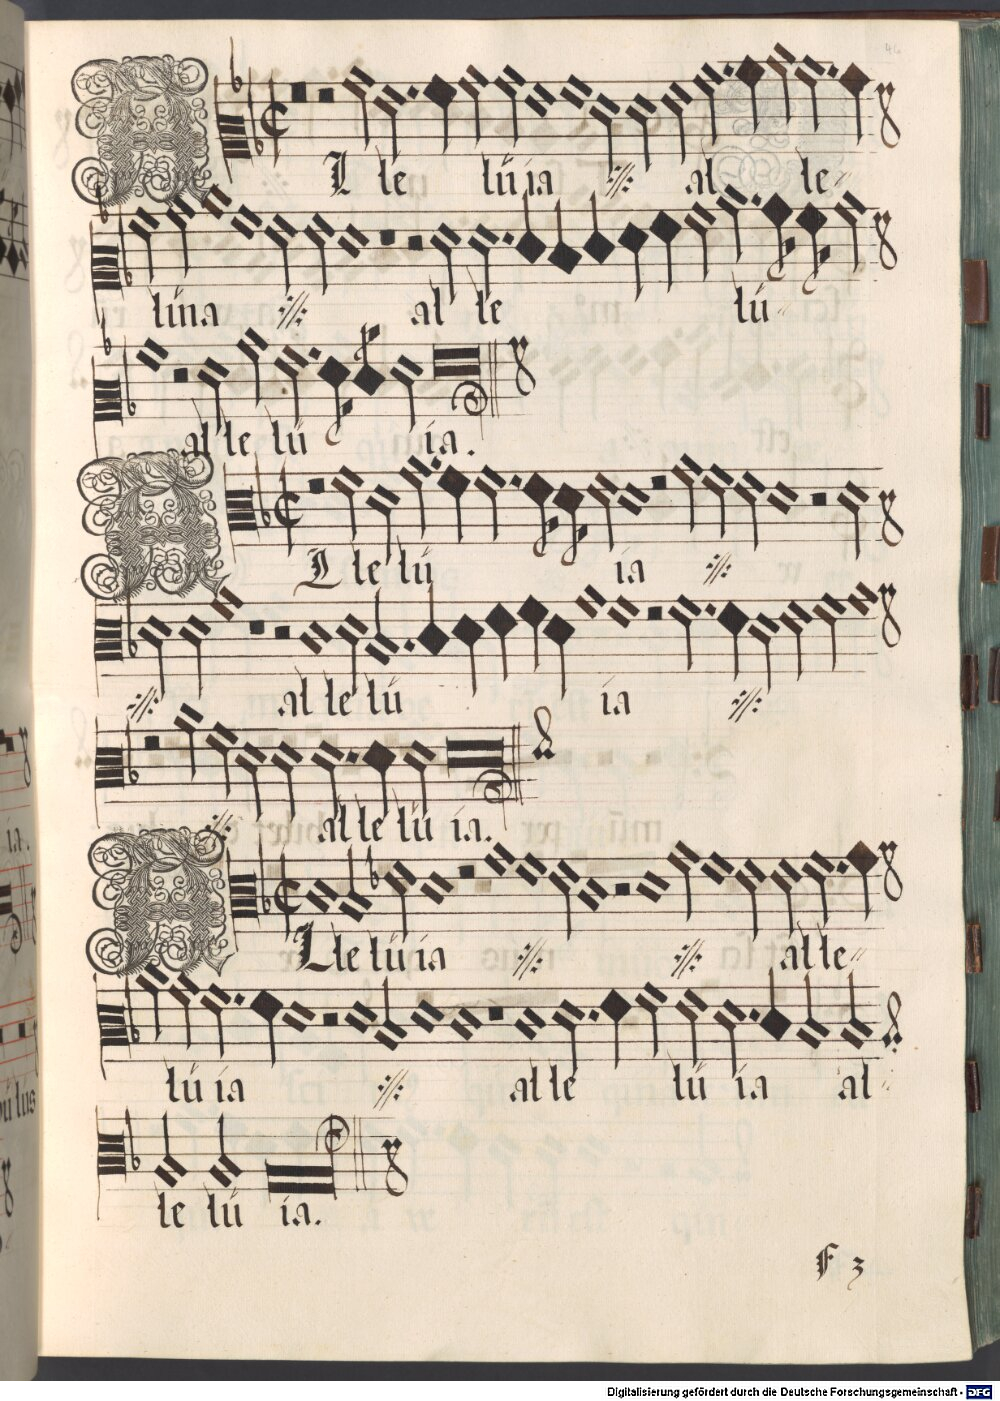 46
ALleluia :||: alle=
luia :||: alle lu=
alleluia.
ALlelu ia :||:
:||: allelu ia :||:
:||: alleluia.
ALleluia :||: :||: alle=
luia :||: alle lu ia al=
lelu ia.
F 3
Digitalisierung gefördert durch die Deutsche Forschungsgemeinschaft - DFG